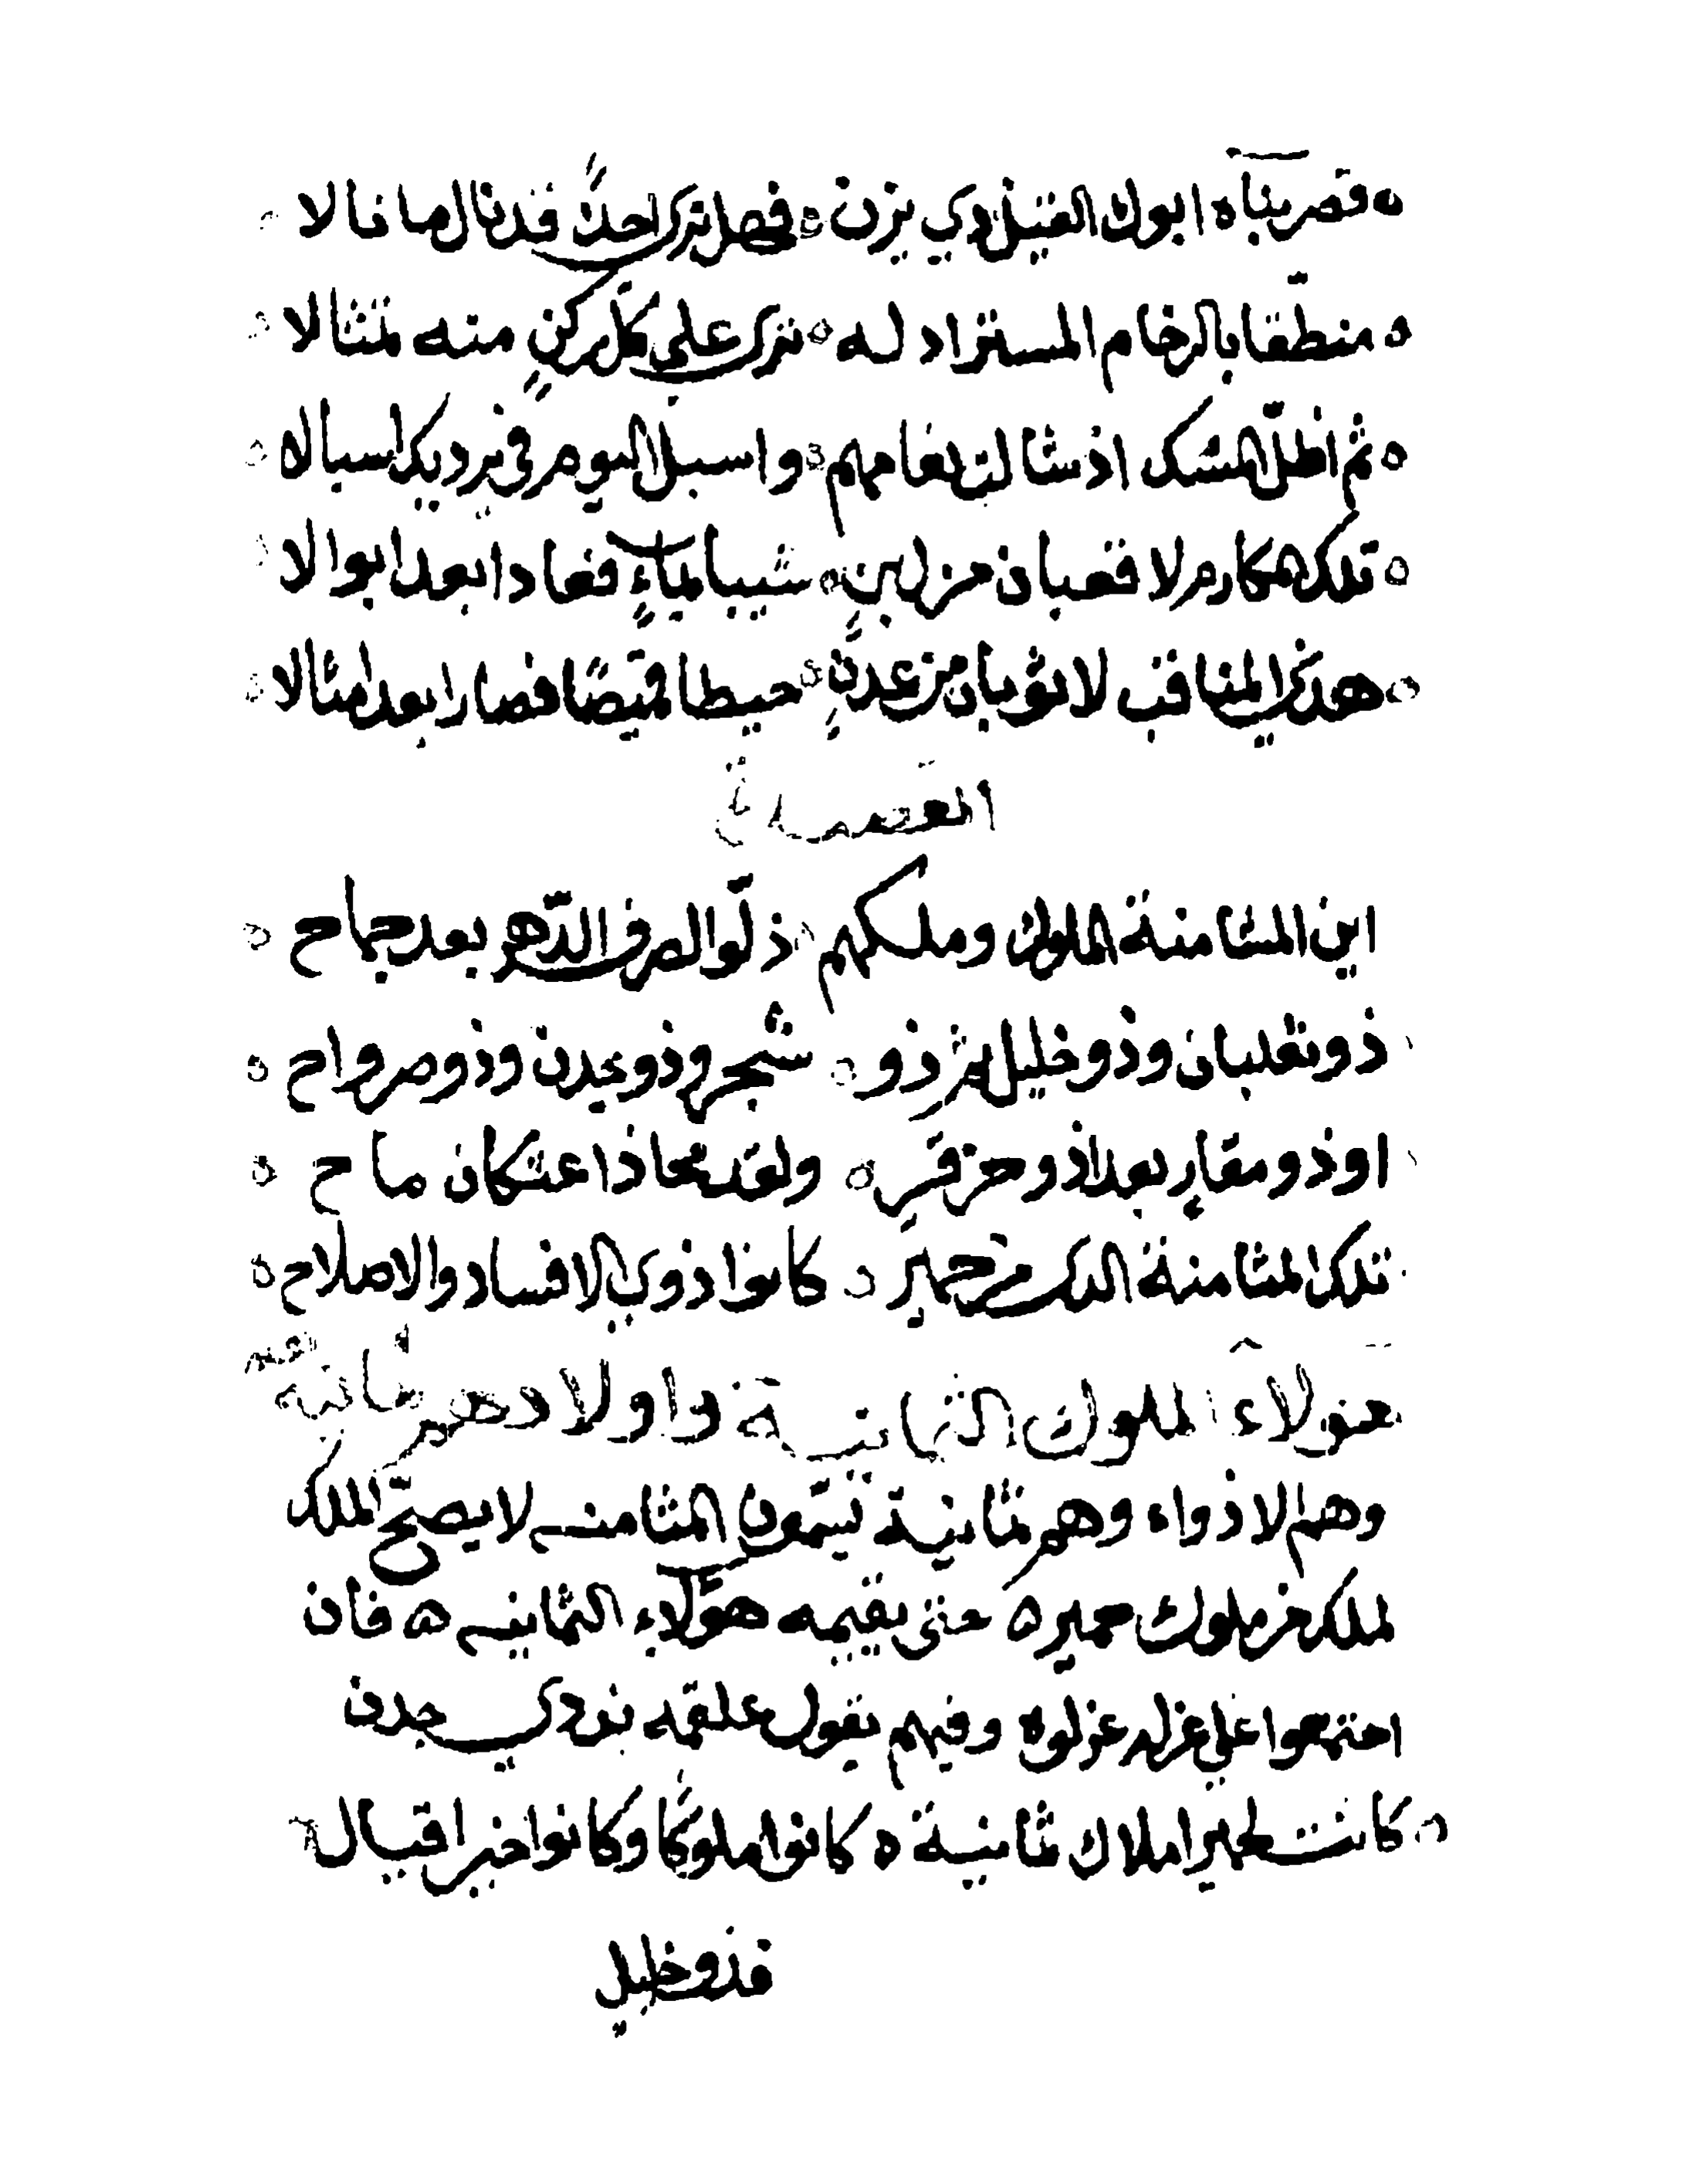 ه قصر بناه ابوك القيل ذي يزن ه فهل ترى احدًا قد نال ما نالا
ه منطقا بالرخام المستزاد له ه ترى على كل ركنٍ منه تمثالا
ه ثم اطل المسك اذ شالت نعامهم ه واسبل اليوم في برديك اسبالا ه
ه تلك المكارم لا قعبان من لبنٍ ه شيبا بماءٍ فعادا بعد ابوالا
ه هذي المناقب لا ثوبان من عدنٍ ه خيطا قميصًا فصارا بعد اسمالا
القصيدة
اين المثامنة الملوك وملكهم ه ذلّوا لصرف الدّهر بعد جماح ه
ذو ثعلبان وذو خليل ثم ذو ه شجر وذو جدن وذو صرواح ه
او ذو مقارٍ بعد او ذو حزفرٍ ه ولقد محا ذا عثكلان ماح ه
تلك المثامنة الذرى من حمير ه كانوا ذوي الافساد والاصلاح ه
هؤلاء الملوك الثمانية واولادهم ثمانية
وهم الاذواء وهم ثمانية يسمون المثامنه لا يصح الملك
لملك من ملوك حمير ه حتى يقيمه هؤلاء الثمانيه ه فان
اجتمعوا على عزله عزلوه وفيهم يقول علقمه بن ذي جدن
ه كانت لحمير املاك ثمانية ه كانوا ملوكًا وكانوا خير اقيال
فذو خليل